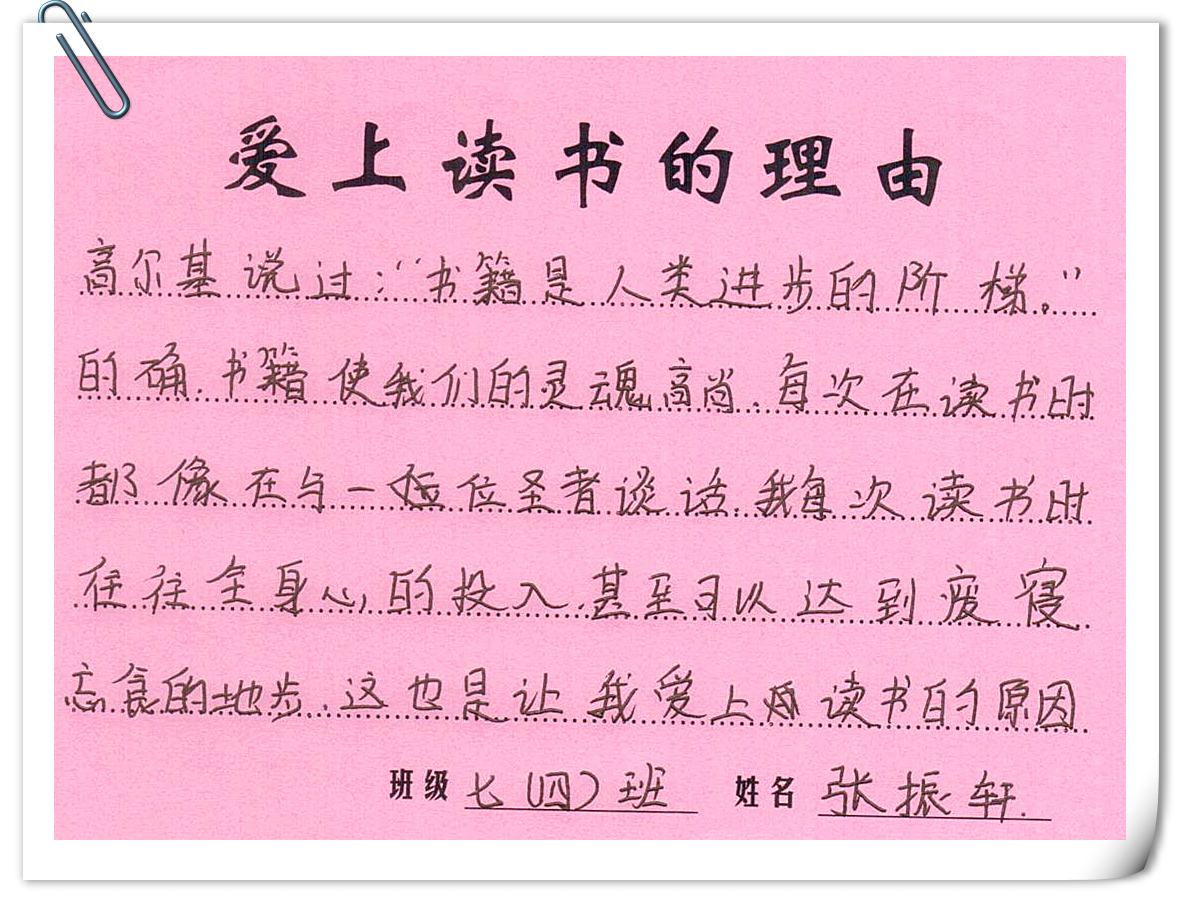 爱上读书的理由
高尔基说过:“书籍是人类进步的阶梯。”
的确,书籍使我们的灵魂高尚,每次在读书时
都像在与一位圣者谈话,我每次读书时
往往全身心的投入,甚至可以达到废寝
忘食的地步,这也是让我爱上读书的原因
班级 七(四)班 姓名 张振轩.